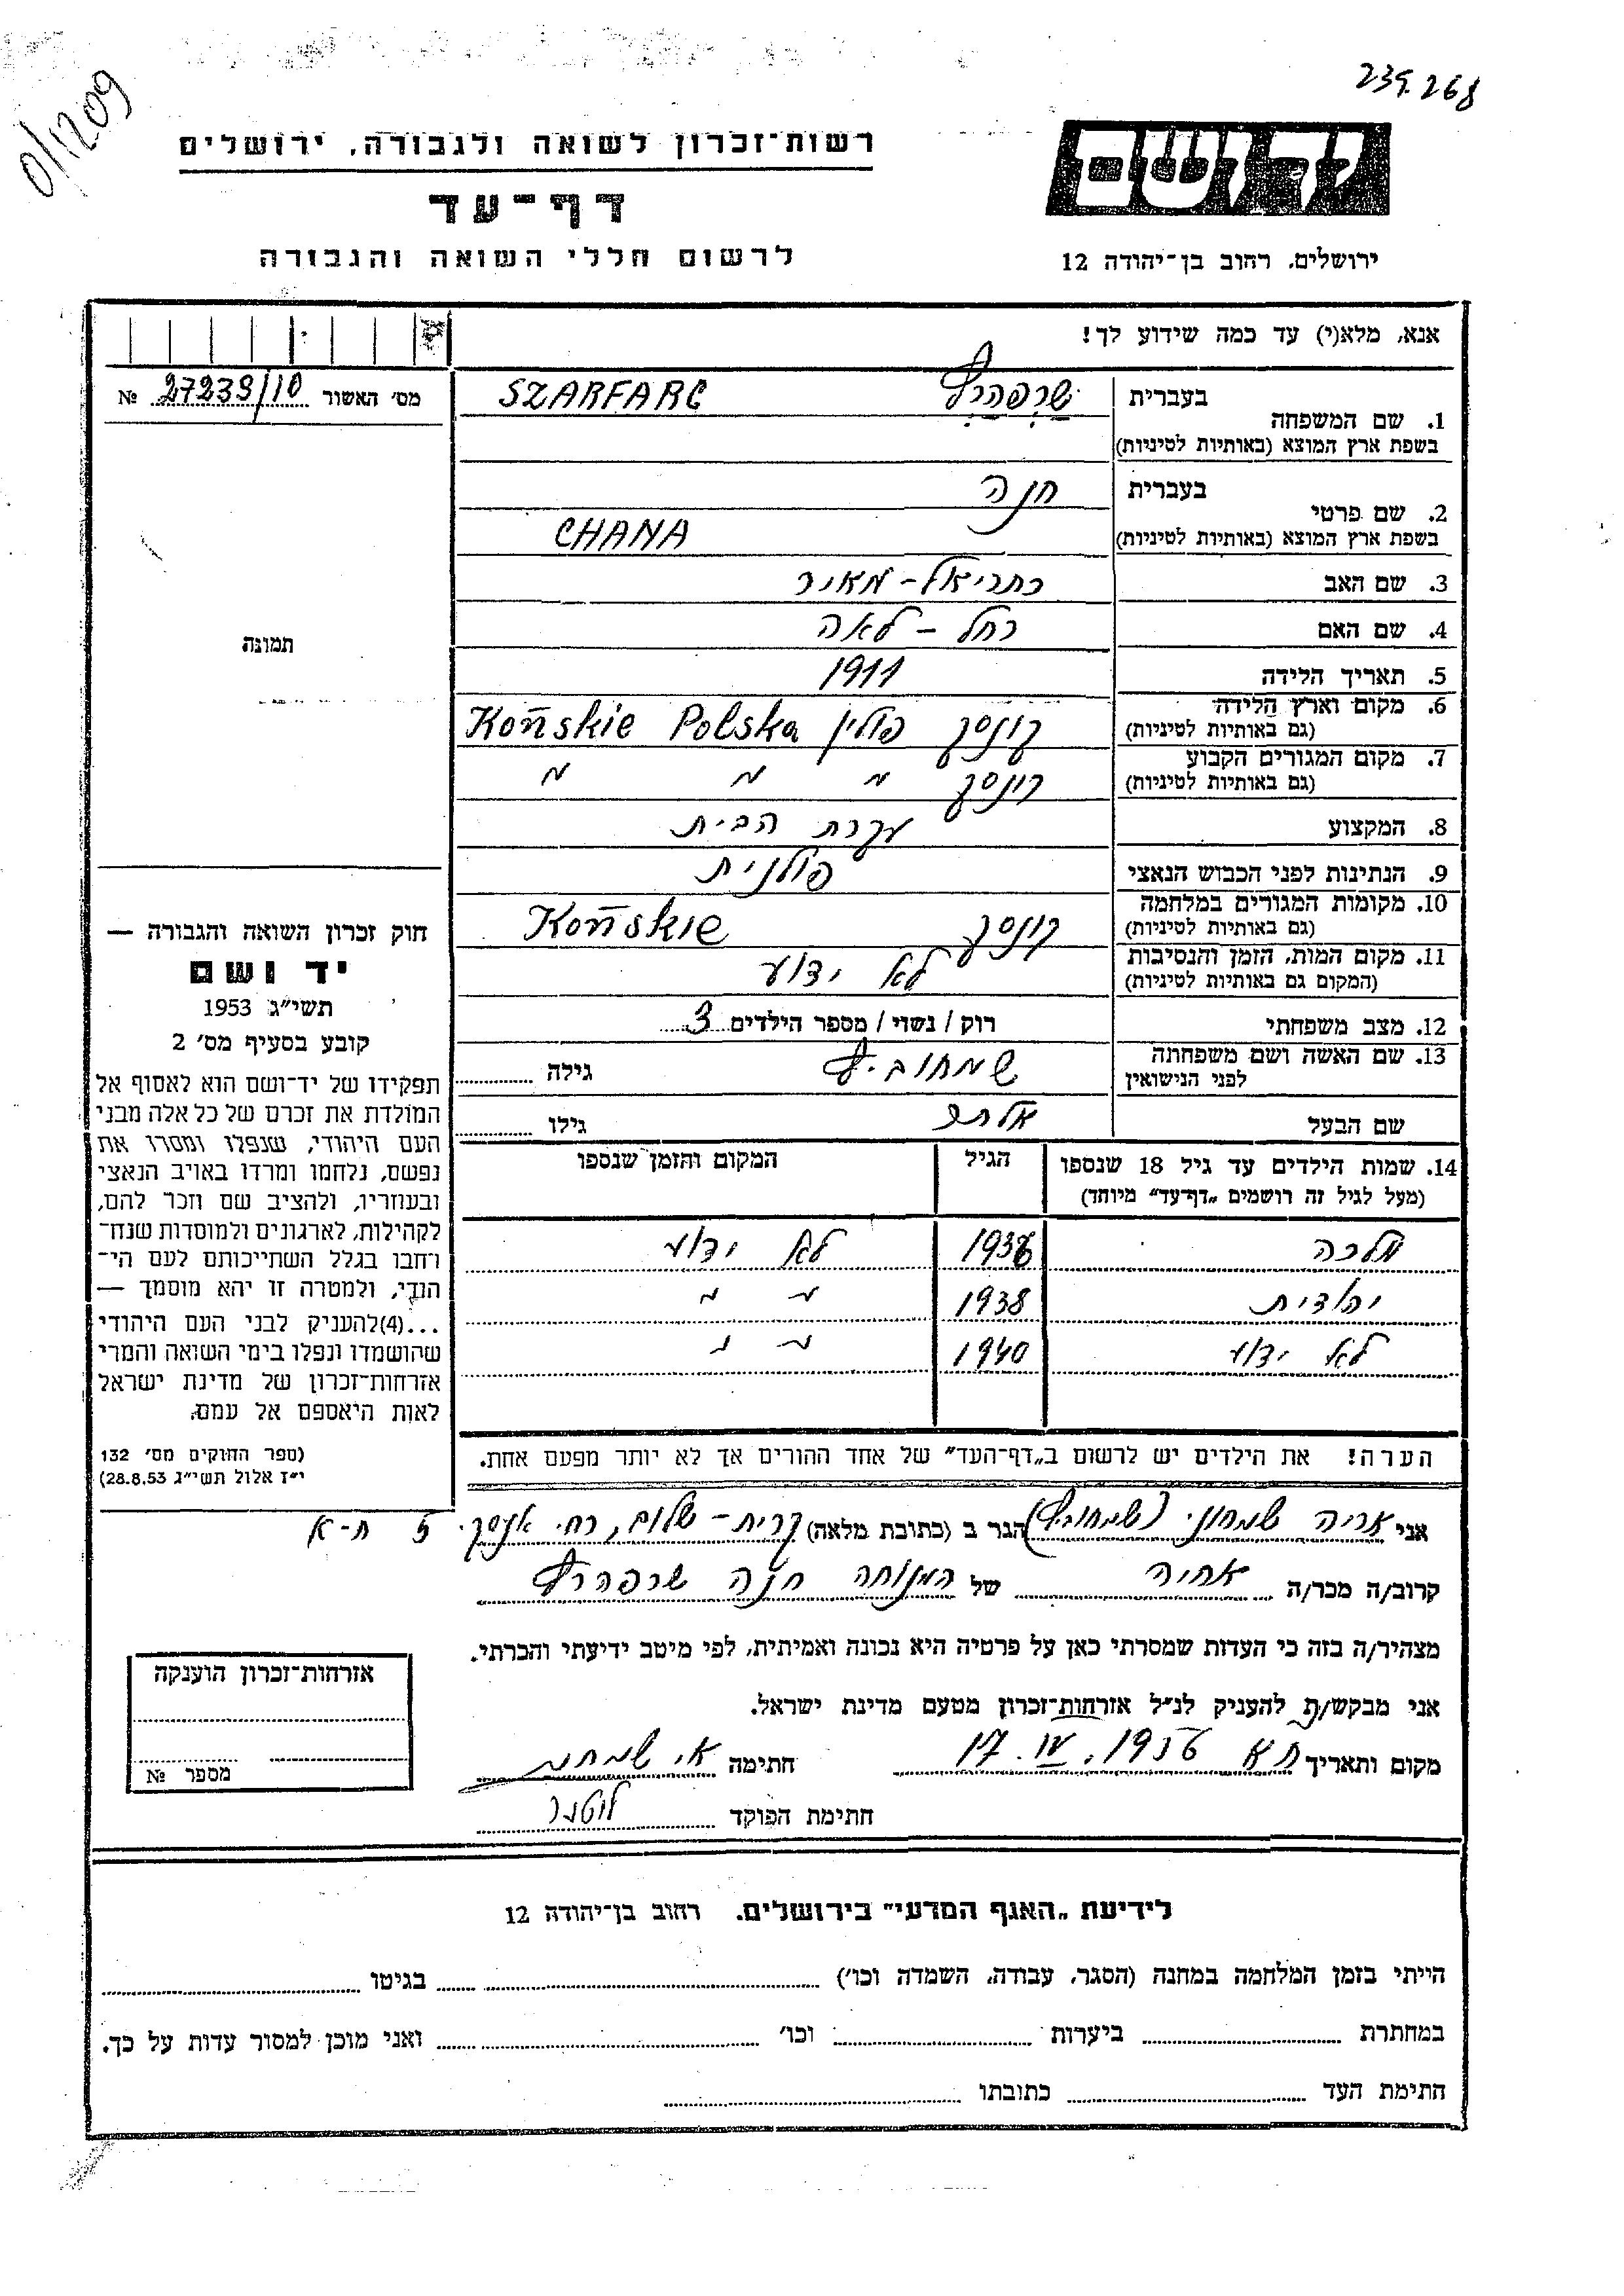 239.268
0/1209
יד ושם
ירושלים, רחוב בן-יהודה 12
רשות-זכרון לשואה ולגבורה, ירושלים
דף-עד
לרשום חללי השואה והגבורה
אנא, מלא(י) עד כמה שידוע לך!
מס' האשור 27239/10 №
1. שם המשפחה
בעברית שרפהרץ SZARFARC
בשפת ארץ המוצא (באותיות לטיניות)
בעברית חנה
2. שם פרטי
בשפת ארץ המוצא (באותיות לטיניות) CHANA
3. שם האב כתריאל-מאיר
4. שם האם רחל - לאה
5. תאריך הלידה 1911
6. מקום וארץ הלידה
(גם באותיות לטיניות) קונסק פולין Końskie Polska
7. מקום המגורים הקבוע
(גם באותיות לטיניות) קונסק " " "
8. המקצוע עקרת הבית
9. הנתינות לפני הכבוש הנאצי פולנית
10. מקומות המגורים במלחמה
(גם באותיות לטיניות) קונסק Końskie
11. מקום המות, הזמן והנסיבות
(המקום גם באותיות לטיניות) לא ידוע
12. מצב משפחתי רוק / נשוי / מספר הילדים 3
13. שם האשה ושם משפחתה
לפני הנישואין שמחוביץ גילה
שם הבעל אלתר גילו
14. שמות הילדים עד גיל 18 שנספו הגיל המקום והזמן שנספו
(מעל לגיל זה רושמים "דף-עד" מיוחד)
מלכה 1936 לא ידוע
יהודית 1938 " "
לא ידוע 1940 " "
הערה! את הילדים יש לרשום ב"דף-העד" של אחד ההורים אך לא יותר מפעם אחת.
תמונה
חוק זכרון השואה והגבורה —
יד ושם
תשי"ג 1953
קובע בסעיף מס' 2
תפקידו של יד-ושם הוא לאסוף אל
המולדת את זכרם של כל אלה מבני
העם היהודי, שנפלו ומסרו את
נפשם, נלחמו ומרדו באויב הנאצי
ובעוזריו, ולהציב שם וזכר להם,
לקהילות, לארגונים ולמוסדות שנח-
רחבו בגלל השתייכותם לעם הי-
הודי, ולמטרה זו יהא מוסמך —
...(4)להעניק לבני העם היהודי
שהושמדו ונפלו בימי השואה והמרי
אזרחות-זכרון של מדינת ישראל
לאות היאספם אל עמם.
(ספר החוקים מס' 132
י"ז אלול תשי"ג 28.8.53)
אני אריה שמחוני (שמחוביץ) הגר ב (כתובת מלאה) קרית-שלום, רח' 5 ת-א
קרוב/ה מכר/ה אחיה של המנוחה חנה שרפהרץ
מצהיר/ה בזה כי העדות שמסרתי כאן על פרטיה היא נכונה ואמיתית, לפי מיטב ידיעתי והכרתי.
אני מבקש/ת להעניק לנ"ל אזרחות-זכרון מטעם מדינת ישראל.
מקום ותאריך תא 17.IV.1956 חתימה א. שמחוני
חתימת הפוקד
אזרחות-זכרון הוענקה
מספר №
לידיעת "האגף המדעי" בירושלים, רחוב בן-יהודה 12
הייתי בזמן המלחמה במחנה (הסגר, עבודה, השמדה וכו') בגיטו
במחתרת ביערות וכו' ואני מוכן למסור עדות על כך.
התימת העד כתובתו